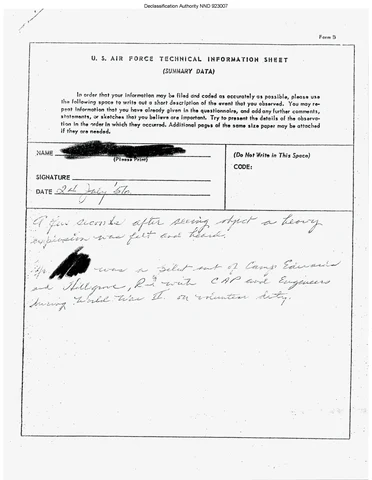 Declassification Authority NND 923007
Form 5
U. S. AIR FORCE TECHNICAL INFORMATION SHEET
(SUMMARY DATA)
In order that your information may be filed and coded as accurately as possible, please use
the following space to write out a short description of the event that you observed. You may re-
peat information that you have already given in the questionnaire, and add any further comments,
statements, or sketches that you believe are important. Try to present the details of the observa-
tion in the order in which they occurred. Additional pages of the same size paper may be attached
if they are needed.
NAME
(Please Print)
(Do Not Write in This Space)
CODE:
SIGNATURE
DATE 2nd July
A few seconds after seeing object a heavy
explosion was felt and heard.
was a pilot out of Camp Edwards
and Hillgrove, R.I. with CAP and Engineers
during World War II on volunteer duty.